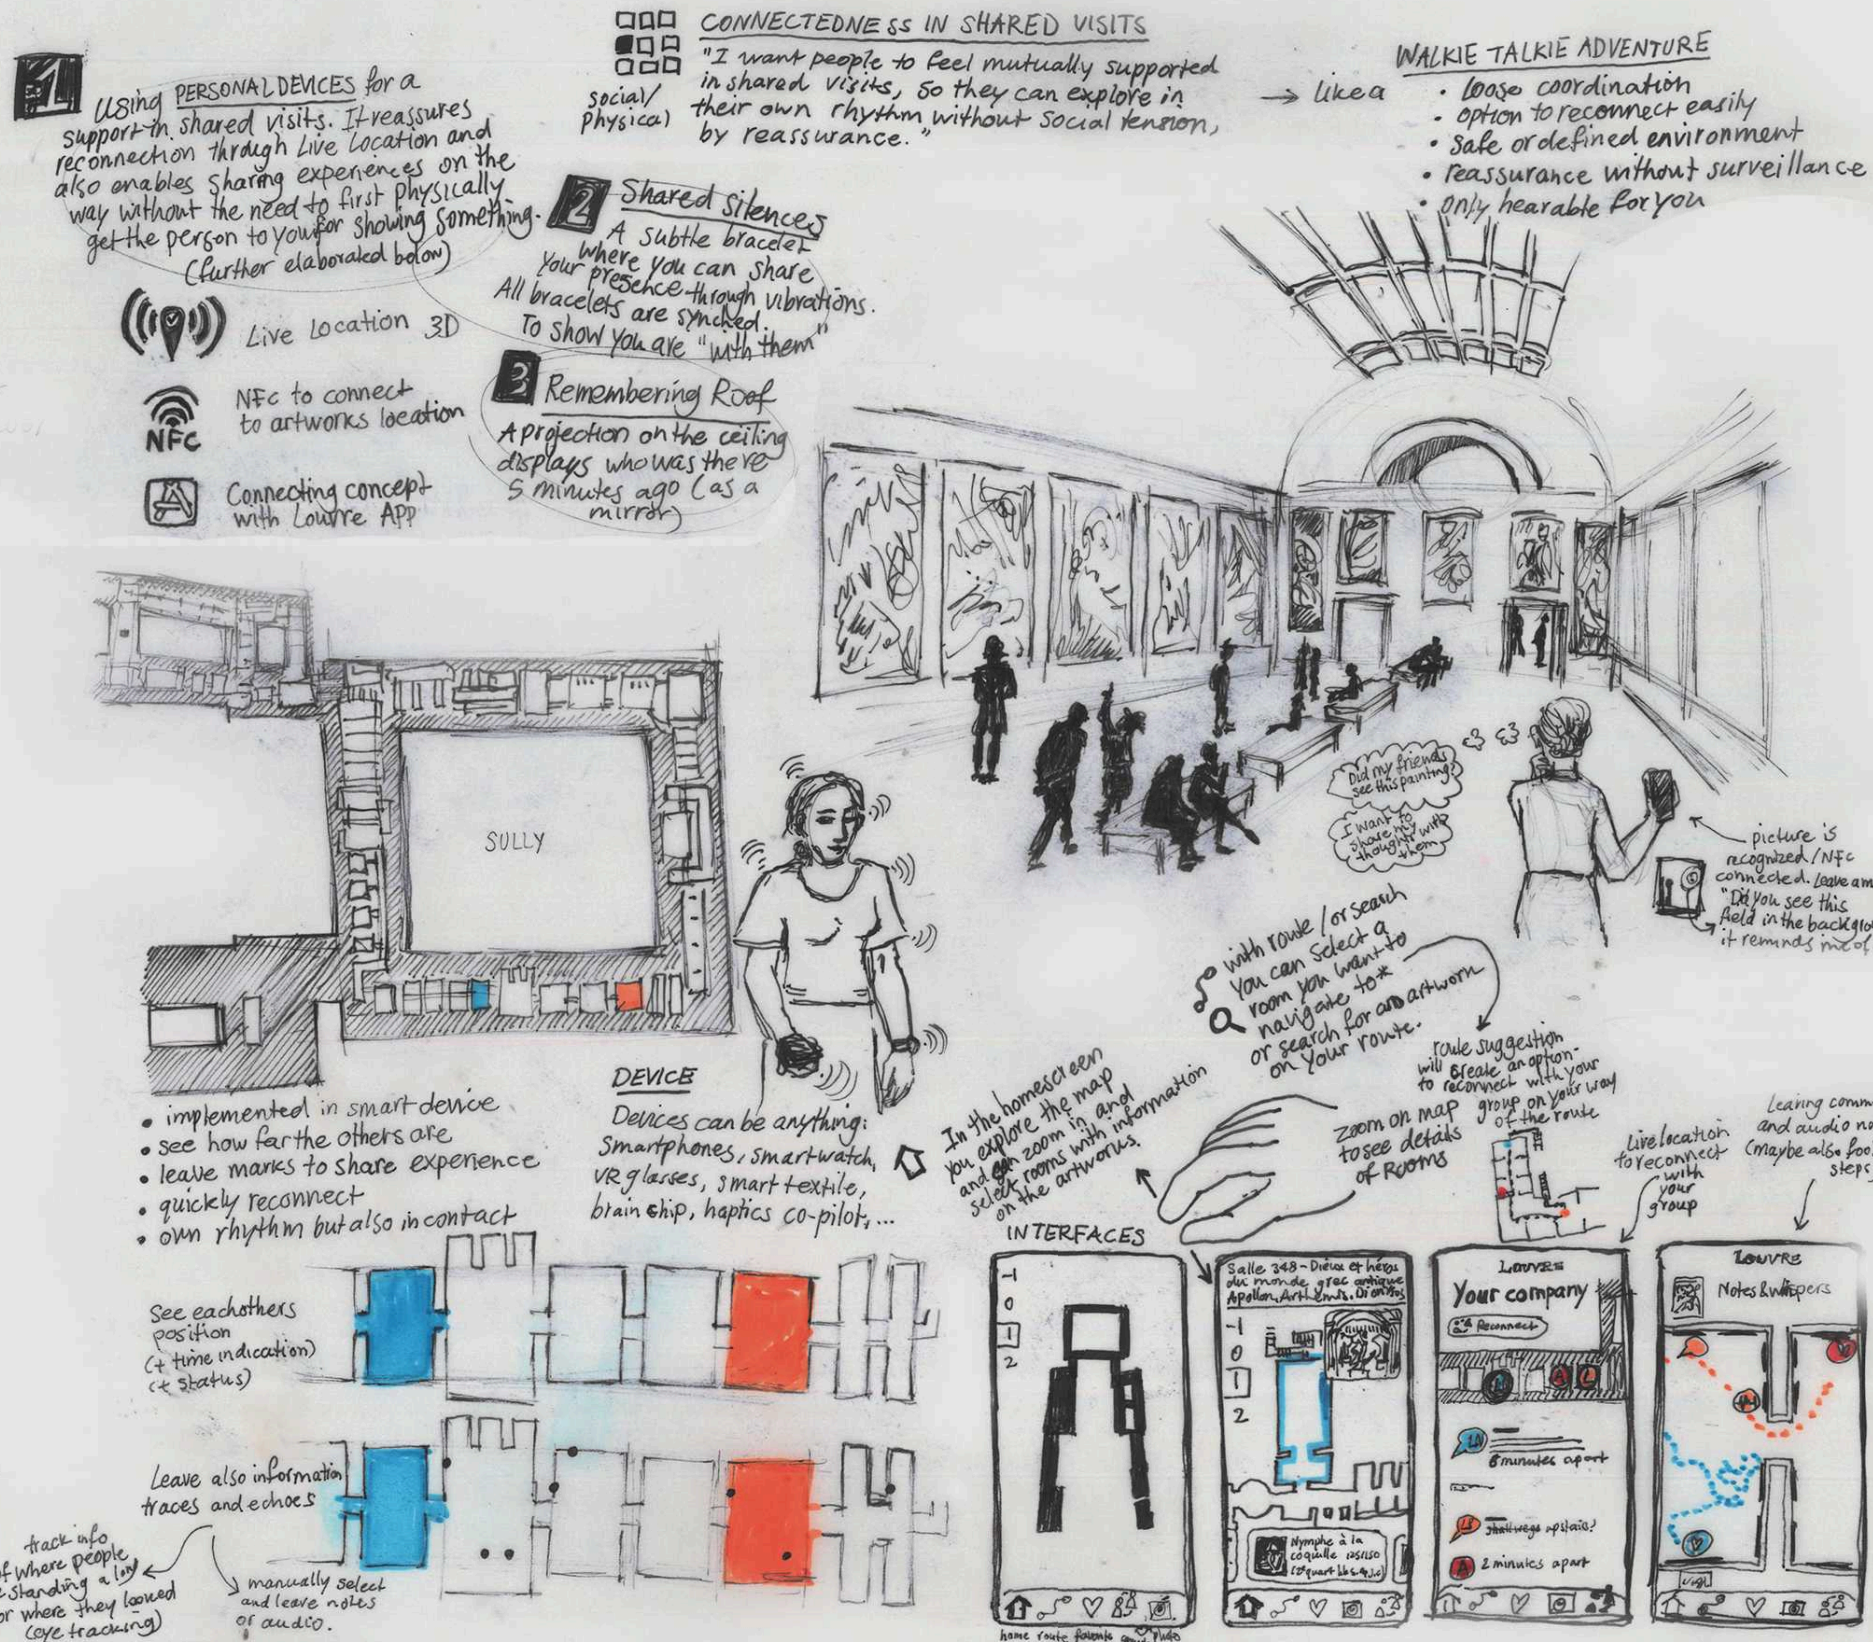 CONNECTEDNESS IN SHARED VISITS
"I want people to feel mutually supported
in shared visits, so they can explore in
their own rhythm without social tension,
by reassurance."
social/
physical
→ like a
WALKIE TALKIE ADVENTURE
• Loose coordination
• option to reconnect easily
• Safe or defined environment
• reassurance without surveillance
• only hearable for you
1
Using PERSONAL DEVICES for a
support in shared visits. It reassures
reconnection through Live Location and
also enables sharing experiences on the
way without the need to first physically
get the person to you for showing something.
(further elaborated below)
Live Location 3D
NFC
NFC to connect
to artworks location
Connecting concept
with Louvre APP
2 Shared Silences
A subtle bracelet
where you can share
your presence through vibrations.
All bracelets are synched.
To show you are "with them"
3 Remembering Roof
A projection on the ceiling
displays who was there
5 minutes ago (as a
mirror)
SULLY
Did my friends
see this painting?
I want to
share my
thoughts with
them
picture is
recognized/NFC
connected. Leave a
"Did you see this
field in the
it reminds me of
with route/or search
you can select a
room you want to
navigate to*
or search for an artwork
on your route.
route suggestion
will create an option
to reconnect with your
group on your way
of the route
• implemented in smart device
• see how far the others are
• leave marks to share experience
• quickly reconnect
• own rhythm but also in contact
DEVICE
Devices can be anything:
Smartphones, smartwatch,
VR glasses, smart textile,
brain chip, haptics co-pilot, ...
In the homescreen
you explore the map
and can zoom in and
select rooms with information
on the artworks.
zoom on map
to see details
of Rooms
Live location
to reconnect
with
your
group
and audio
(maybe also
steps
See eachothers
position
(+ time indication)
(+ status)
Leave also information
traces and echoes
track info
of where people
standing a
or where they looked
(eye tracking)
manually select
and leave notes
or audio.
INTERFACES
-1
0
1
2
home route favorits photo
Salle 348 - Dieux et héros
du monde grec antique
Apollon, Arthemis, Dionysos
-1
0
1
2
Nymphe à la
coquille
LOUVRE
Your company
Reconnect
8 minutes apart
upstairs?
A 2 minutes apart
LOUVRE
Notes & whispers